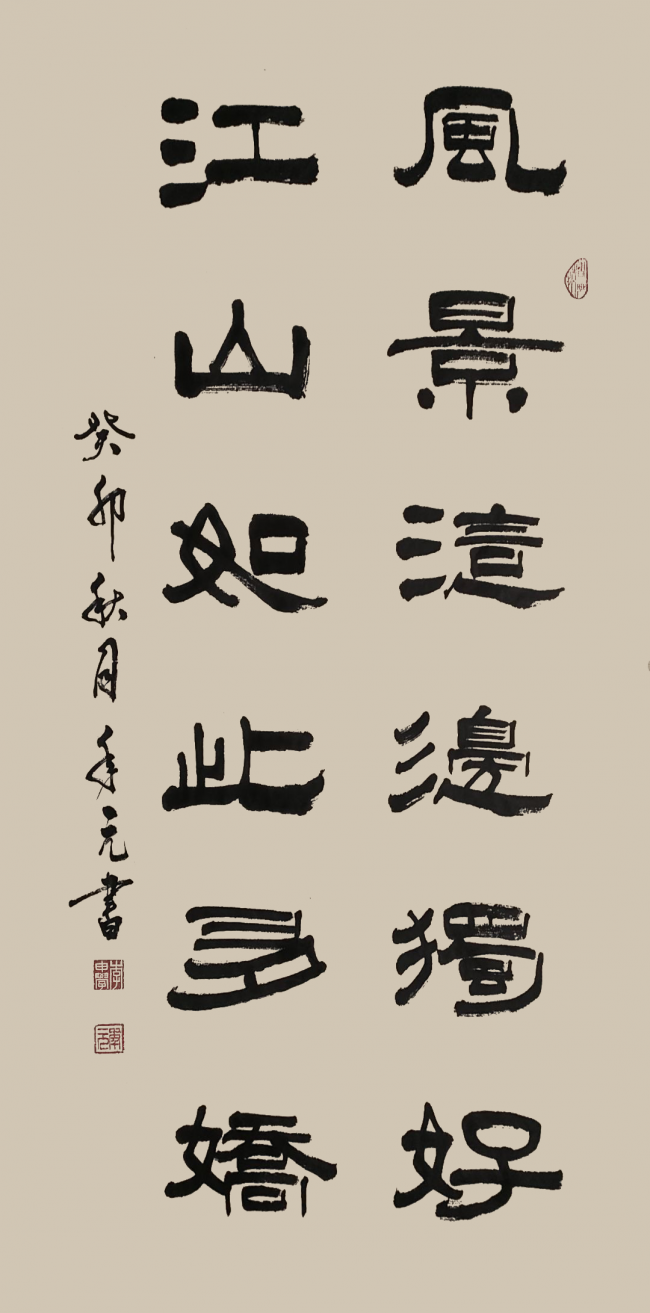 風景這邊獨好
江山如此多嬌
癸卯秋月年元書